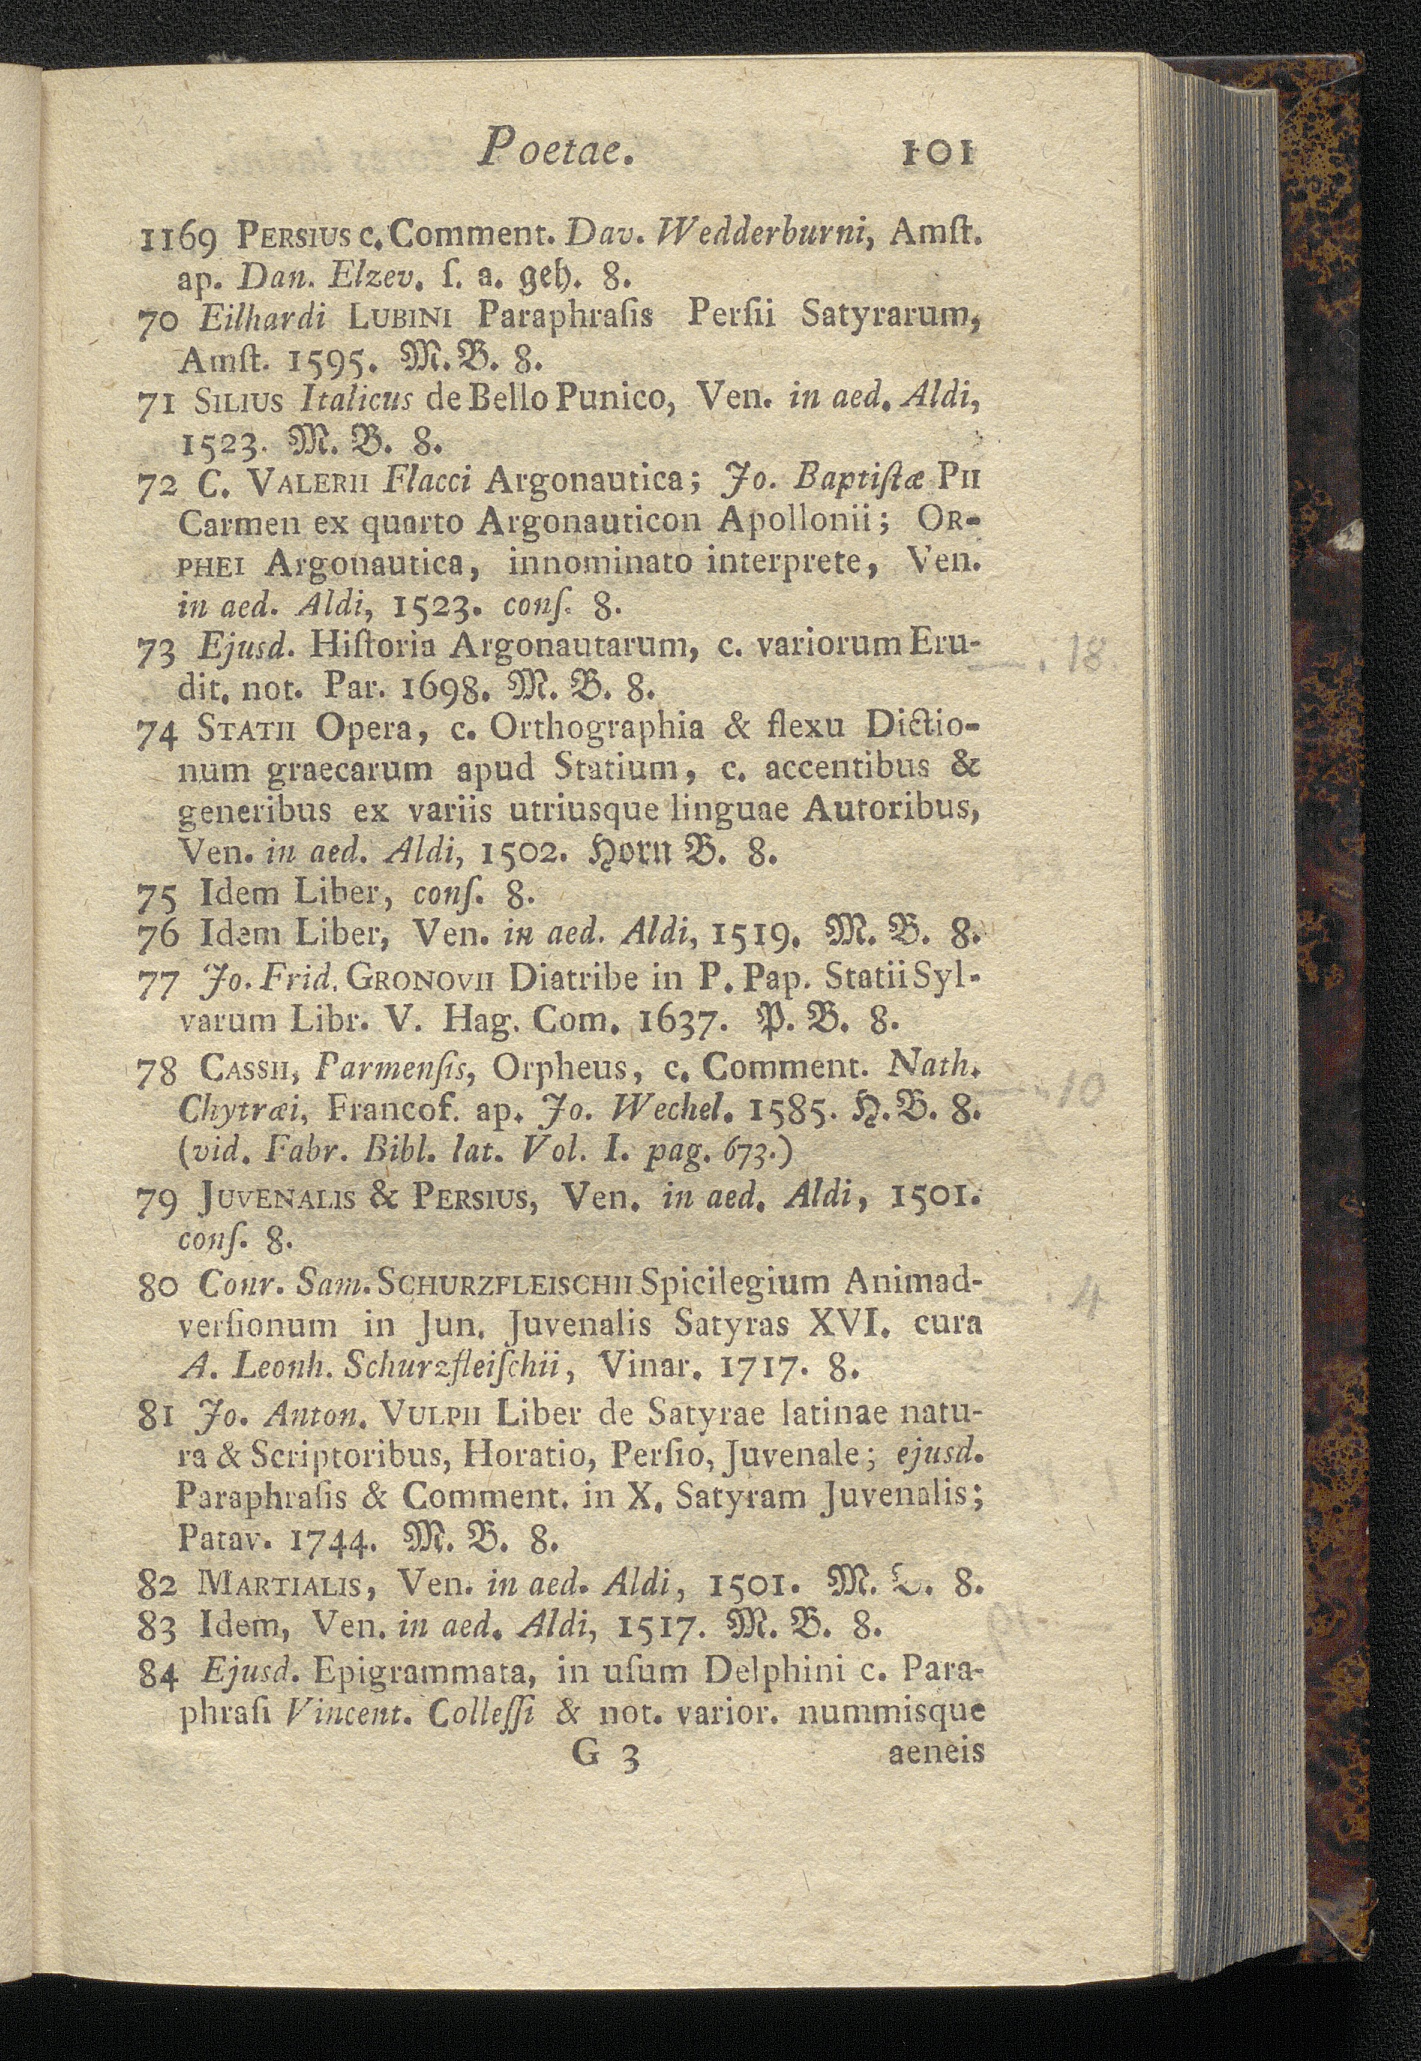 Poetae. 101
1169 PERSIUS c. Comment. Dav. Wedderburni, Amſt.
ap. Dan. Elzev. ſ. a. geh. 8.
70 Eilhardi LUBINI Paraphraſis Perſii Satyrarum,
Amſt. 1595. M. B. 8.
71 SILIUS Italicus de Bello Punico, Ven. in aed. Aldi,
1523. M. B. 8.
72 C. VALERII Flacci Argonautica; Jo. Baptiſtæ PII
Carmen ex quarto Argonauticon Apollonii; OR-
PHEI Argonautica, innominato interprete, Ven.
in aed. Aldi, 1523. conſ. 8.
73 Ejusd. Hiſtoria Argonautarum, c. variorum Eru- — . 18.
dit. not. Par. 1698. M. B. 8.
74 STATII Opera, c. Orthographia & flexu Dictio-
num graecarum apud Statium, c. accentibus &
generibus ex variis utriusque linguae Autoribus,
Ven. in aed. Aldi, 1502. Horn B. 8.
75 Idem Liber, conſ. 8.
76 Idem Liber, Ven. in aed. Aldi, 1519. M. B. 8.
77 Jo. Frid. GRONOVII Diatribe in P. Pap. Statii Syl-
varum Libr. V. Hag. Com. 1637. P. B. 8.
78 CASSII, Parmenſis, Orpheus, c. Comment. Nath. — . 10
Chytræi, Francof. ap. Jo. Wechel. 1585. H. B. 8.
(vid. Fabr. Bibl. lat. Vol. I. pag. 673.)
79 JUVENALIS & PERSIUS, Ven. in aed. Aldi, 1501.
conſ. 8.
80 Conr. Sam. SCHURZFLEISCHII Spicilegium Animad- — . 4
verſionum in Jun. Juvenalis Satyras XVI. cura
A. Leonh. Schurzfleiſchii, Vinar. 1717. 8.
81 Jo. Anton. VULPII Liber de Satyrae latinae natu-
ra & Scriptoribus, Horatio, Perſio, Juvenale; ejusd.
Paraphraſis & Comment. in X. Satyram Juvenalis;
Patav. 1744. M. B. 8.
82 MARTIALIS, Ven. in aed. Aldi, 1501. M. B. 8.
83 Idem, Ven. in aed. Aldi, 1517. M. B. 8.
84 Ejusd. Epigrammata, in uſum Delphini c. Para-
phraſi Vincent. Colleſſi & not. varior. nummisque
G 3 aeneis